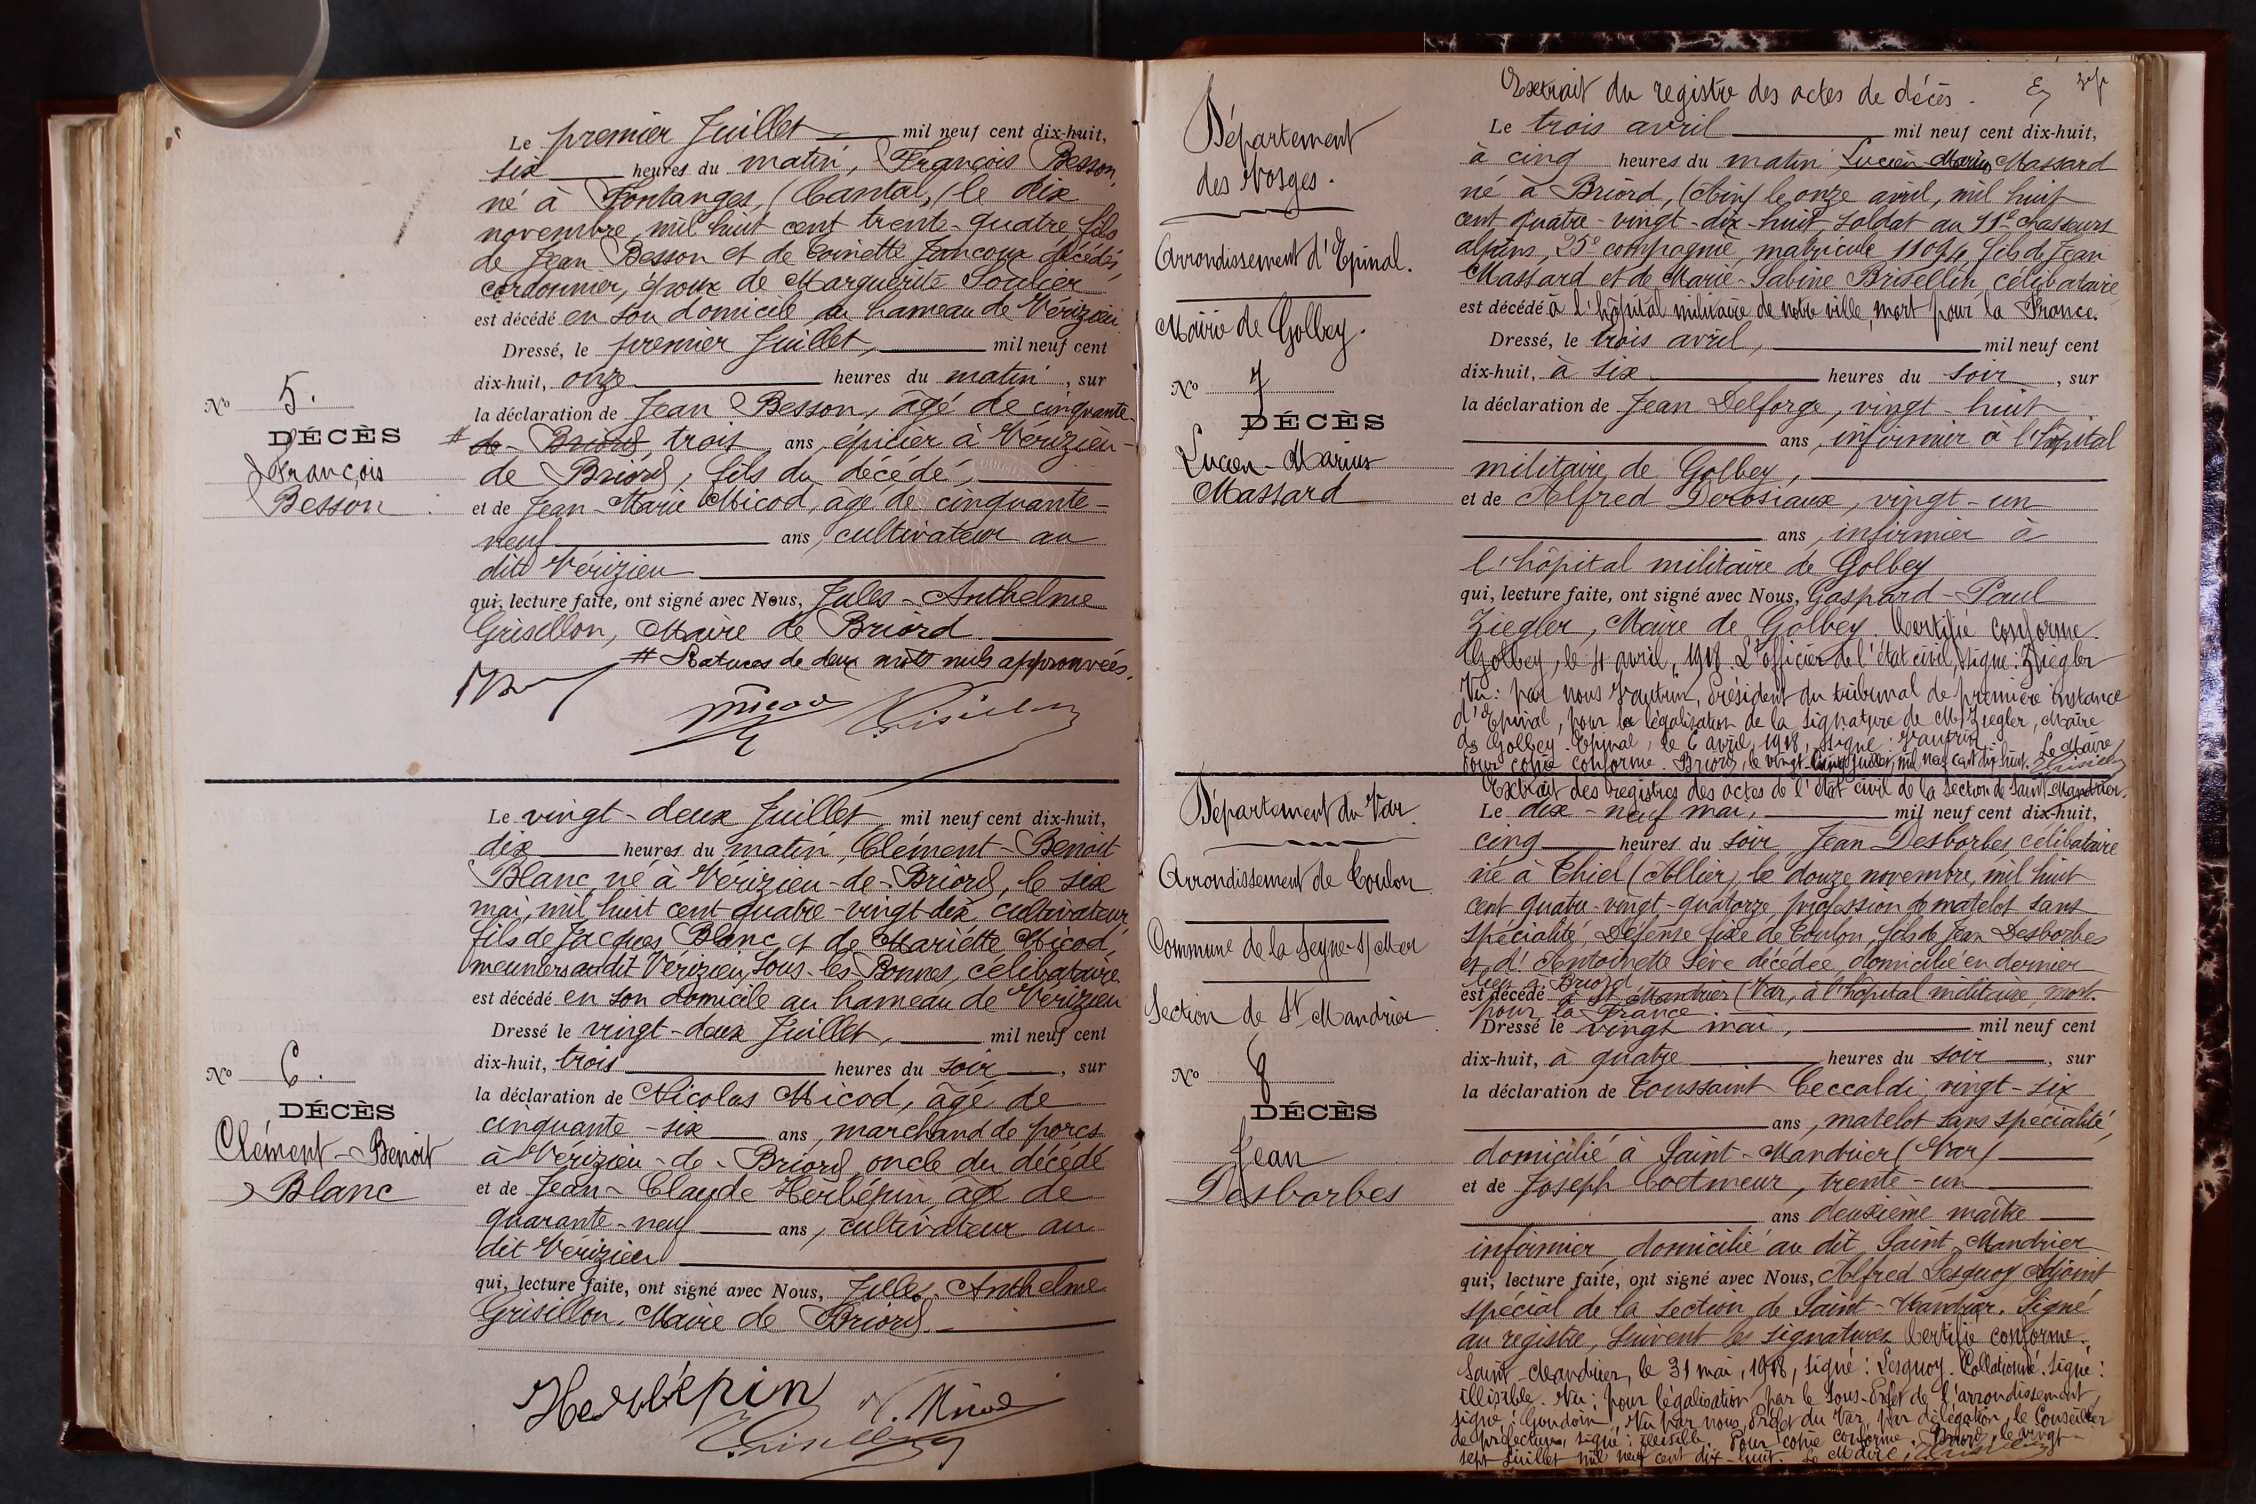 Le premier Juillet mil neuf cent dix-huit,
six heures du matin, François Besson,
né à Fontanges, (Cantal,) le dix
novembre, mil huit cent trente-quatre, fils
de Jean Besson et de Toinette Joncoux décédés,
cordonnier, époux de Marguerite Soulier
est décédé en son domicile au hameau de Vérizieu
Dressé, le premier Juillet, mil neuf cent
dix-huit, onze heures du matin, sur
la déclaration de Jean Besson, âgé de cinquante-
# de Briord trois ans, épicier à Vérizieu-
de Briord, fils du décédé,
et de Jean-Marie Micod, âgé de cinquante-
neuf ans, cultivateur au
dit Vérizieu
qui, lecture faite, ont signé avec Nous, Jules-Anthelme
Grisillon, Maire de Briord
# Ratures de deux mots nuls approuvées.
Micod Grisillon
No 5.
DÉCÈS
François
Besson
Le vingt-deux Juillet mil neuf cent dix-huit,
dix heures du matin, Clément-Benoit
Blanc, né à Vérizieu-de-Briord, le six
mai, mil huit cent quatre-vingt-dix, cultivateur,
fils de Jacques Blanc et de Mariette Micod,
meuniers audit Vérizieu, célibataire
est décédé en son domicile au hameau de Vérizieu
Dressé le vingt-deux Juillet, mil neuf cent
dix-huit, trois heures du soir, sur
la déclaration de Nicolas Micod, âgé de
cinquante-six ans, marchand de porcs
à Vérizieu-de-Briord, oncle du décédé
et de Jean-Claude Herbépin, âgé de
quarante-neuf ans, cultivateur au
dit Vérizieu
qui, lecture faite, ont signé avec Nous, Jules-Anthelme
Grisillon, Maire de Briord.
Herbépin N. Micod
Grisillon
No 6.
DÉCÈS
Clément-Benoit
Blanc
Département
des Vosges.
Arrondissement d'Epinal.
Mairie de Golbey.
No 7
DÉCÈS
Lucien-Marius
Massard
Extrait du registre des actes de décès.
Le trois avril mil neuf cent dix-huit,
à cinq heures du matin Lucien-Marius Massard
né à Briord, (Ain) le onze avril, mil huit
cent quatre-vingt-dix-huit, soldat au 11e chasseurs
alpins, 25e compagnie, matricule 11094, fils de Jean
Massard et de Marie-Sabine Brisellin, célibataire
est décédé à l'hôpital militaire de notre ville, mort pour la France.
Dressé, le trois avril, mil neuf cent
dix-huit, à six heures du soir, sur
la déclaration de Jean Delforge, vingt-huit
ans, infirmier à l'hôpital
militaire de Golbey,
et de Alfred Derosiaux, vingt-un
ans, infirmier à
l'hôpital militaire de Golbey
qui, lecture faite, ont signé avec Nous, Gaspard-Paul
Ziegler, Maire de Golbey. Certifié conforme.
Golbey, le 4 avril, 1918. L'officier de l'état civil, signé: Ziegler
Vu: par nous Vautrin, Président du tribunal de première instance
d'Epinal, pour la légalisation de la signature de M. Ziegler, Maire
de Golbey. Epinal, le 6 avril 1918, signé: Vautrin
Pour copie conforme. Briord, le vingt-cinq juillet, mil neuf cent dix-huit. Le Maire, Grisillon
Département du Var.
Arrondissement de Toulon
Commune de la Seyne-s/-Mer
Section de St Mandrier
No 8
DÉCÈS
Jean
Desborbes
Extrait des registres des actes de l'état civil de la section de Saint-Mandrier.
Le dix-neuf mai, mil neuf cent dix-huit,
cinq heures du soir, Jean Desborbes, célibataire
né à Thiel (Allier), le douze novembre, mil huit
cent quatre-vingt-quatorze, profession de matelot sans
spécialité, Défense fixe de Toulon, fils de Jean Desborbes
et d'Antoinette Sève décédée, domicilié en dernier
lieu à Briord
est décédé à St Mandrier (Var, à l'hôpital militaire, mort
pour la France.
Dressé le vingt mai, mil neuf cent
dix-huit, à quatre heures du soir, sur
la déclaration de Toussaint Ceccaldi vingt-six
ans, matelot sans spécialité,
domicilié à Saint-Mandrier (Var)
et de Joseph Coetmeur, trente-un
ans deuxième maître
infirmier, domicilié au dit Saint Mandrier
qui, lecture faite, ont signé avec Nous, Alfred Lesquoy Adjoint
spécial de la section de Saint-Mandrier. Signé
au registre, suivent les signatures. Certifié conforme.
Saint-Mandrier, le 31 mai, 1918, signé: Lesquoy. Collationné. Signé:
illisible. Vu: pour légalisation par le Sous-Préfet de l'arrondissement,
signé: Goudoin. Vu par nous, Préfet du Var, par délégation, le Conseiller
de préfecture, signé: illisible. Pour copie conforme. Briord, le vingt-
sept Juillet mil neuf cent dix-huit. Le Maire, Grisillon